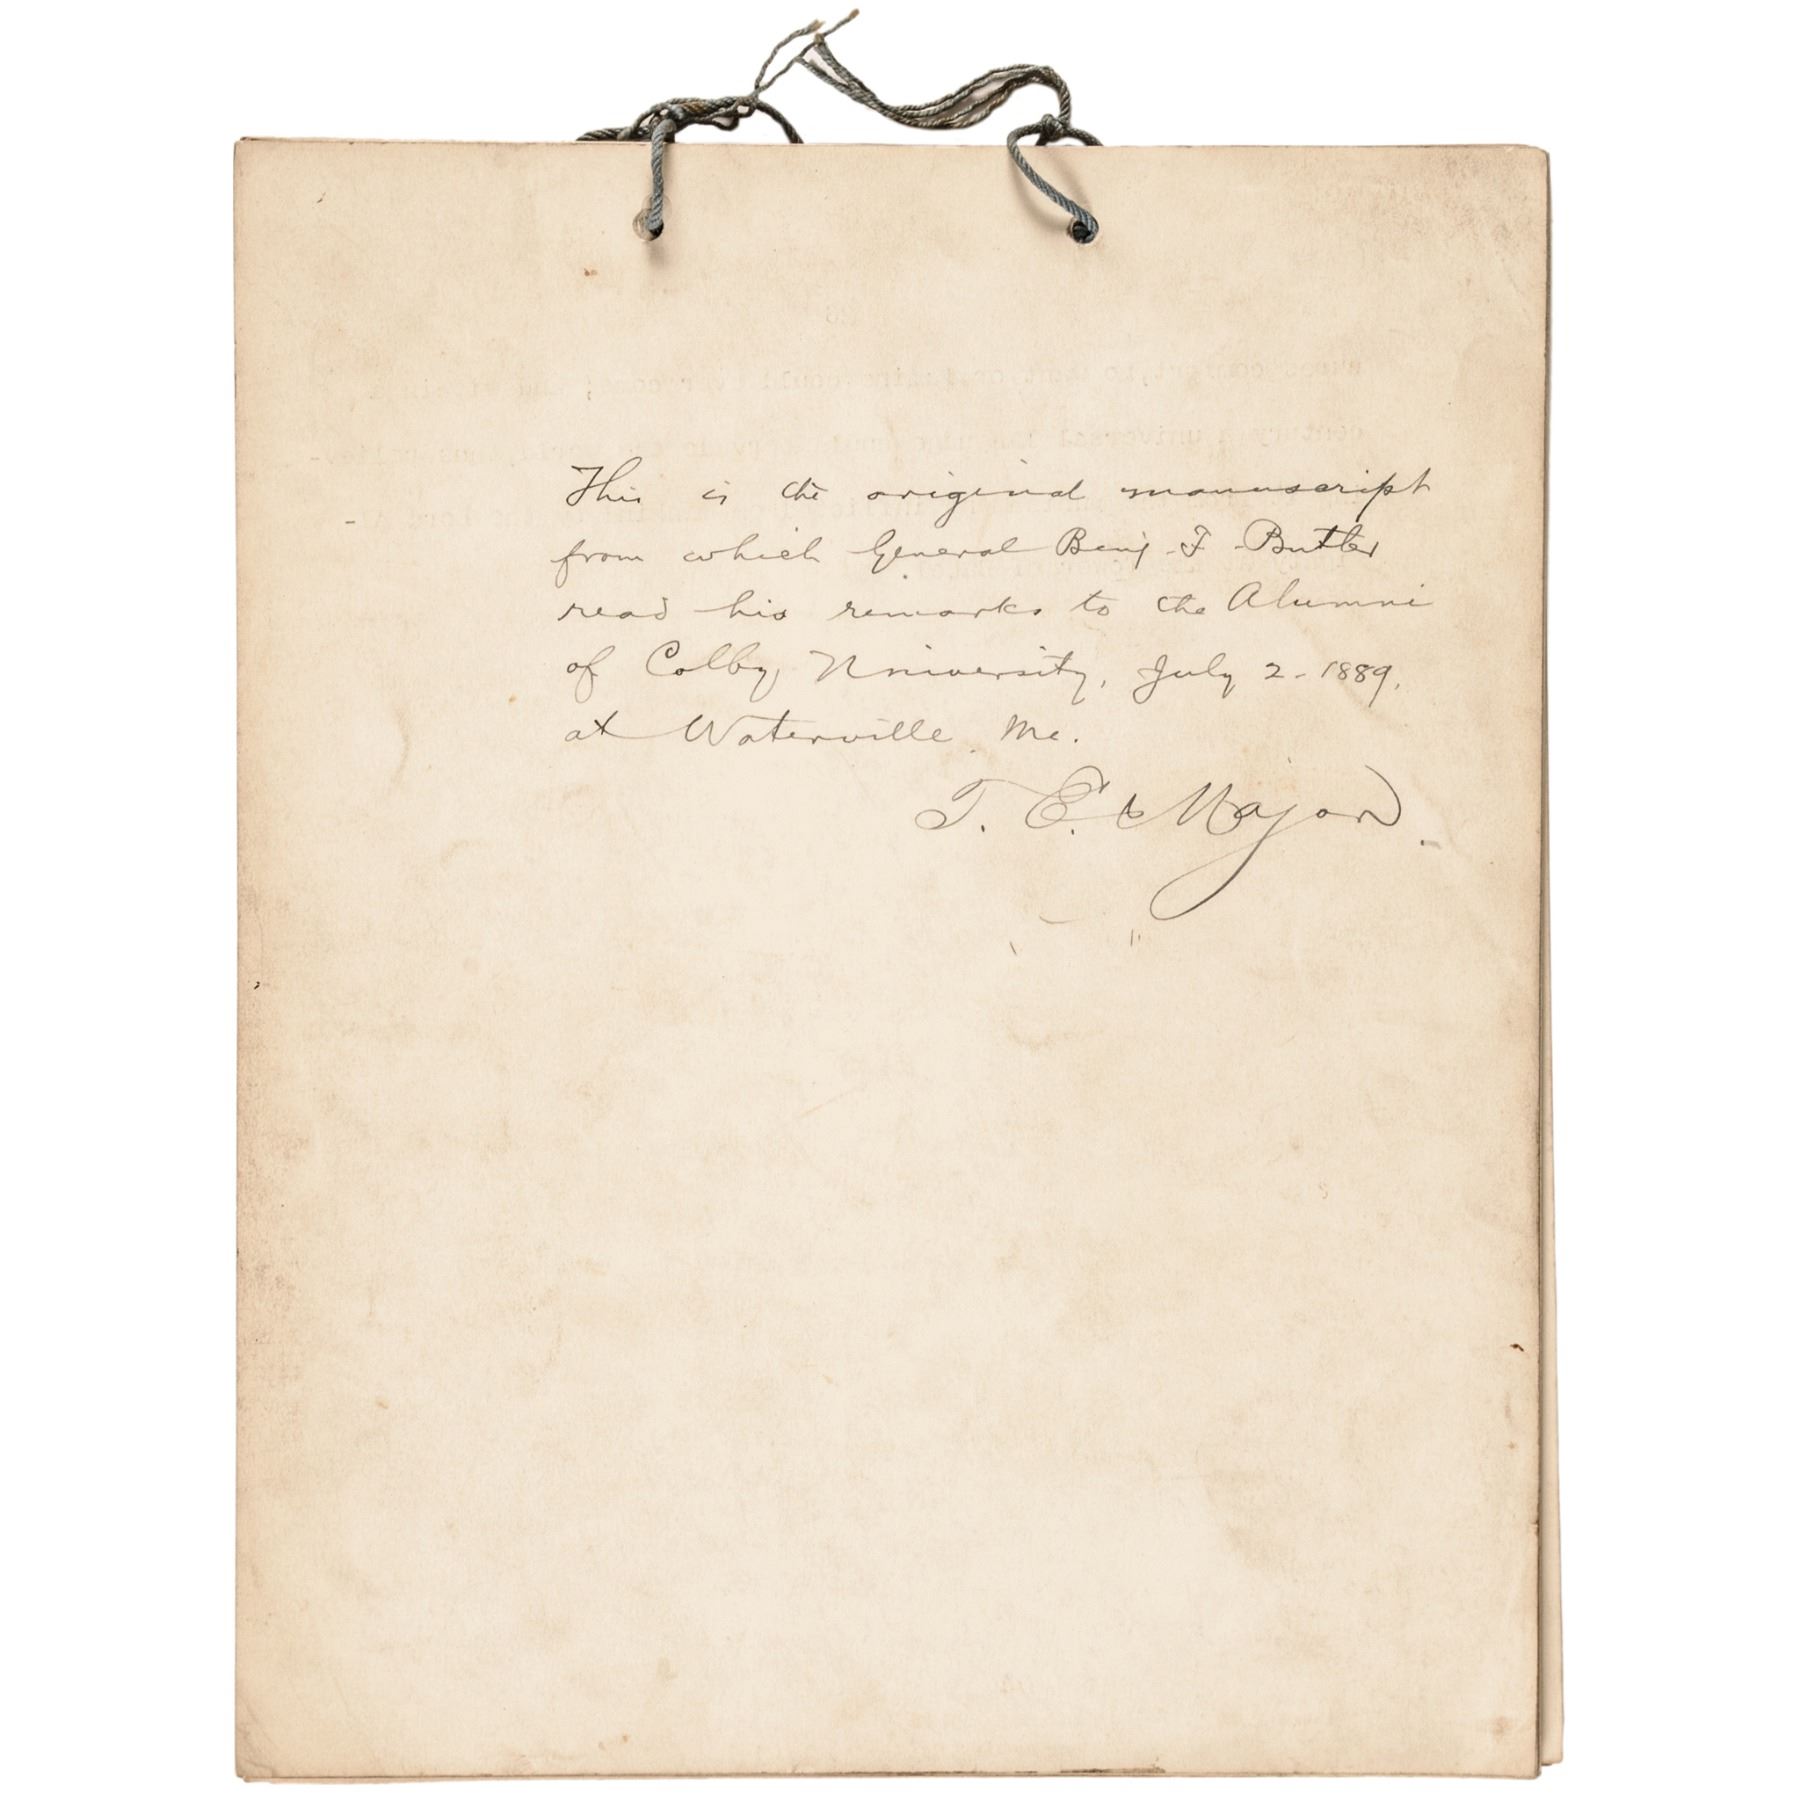 This is the original manuscript
from which General Benj. F. Butler
read his remarks to the Alumni
of Colby University, July 2 - 1889,
at Waterville, Me.
T. E. Major.